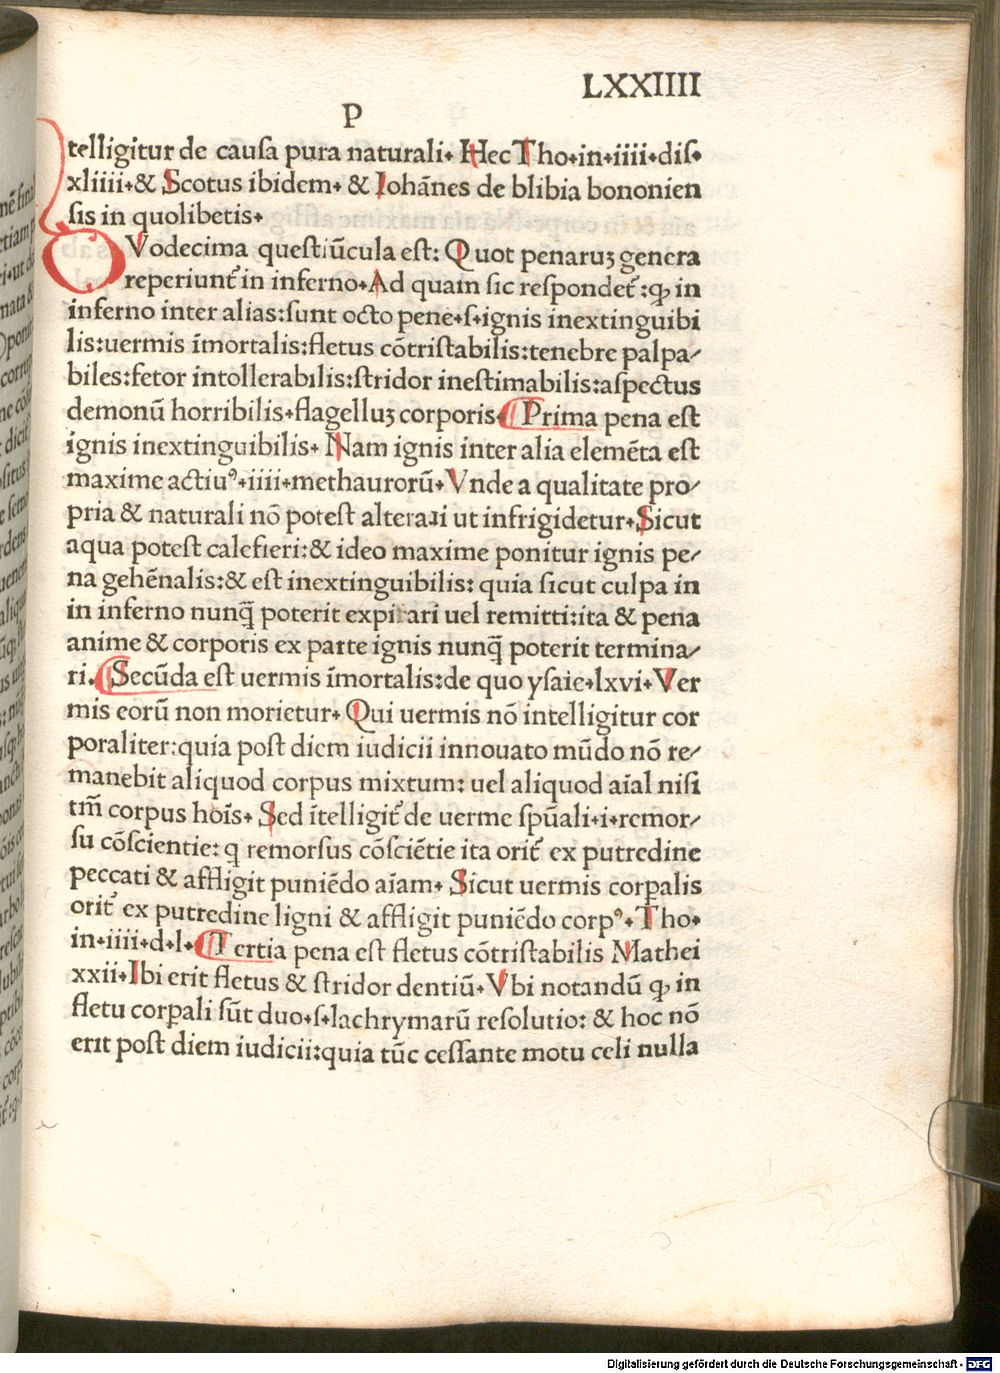 LXXIIII
P
telligitur de cauſa pura naturali. Hec Tho.in.iiii.diſ.
xliiii.& Scotus ibidem. & Iohānes de blibia bononien
ſis in quolibetis.
DVodecima queſtiūcula eſt: Quot penaruꝫ genera
reperiunt᷑ in inferno.Ad quam ſic reſpondet᷑:ꝙ in
inferno inter alias:ſunt octo pene.ſ.ignis inextinguibi
lis:uermis īmortalis:fletus cōtriſtabilis:tenebre palpa⸗
biles:fetor intollerabilis:ſtridor ineſtimabilis:aſpectus
demonū horribilis.flagelluꝫ corporis. Prima pena eſt
ignis inextinguibilis. Nam ignis inter alia elemēta eſt
maxime actiuꝰ.iiii.methaurorū.Vnde a qualitate pro⸗
pria & naturali nō poteſt alterari ut infrigidetur.Sicut
aqua poteſt calefieri:& ideo maxime ponitur ignis pe⸗
na gehēnalis:& eſt inextinguibilis: quia ſicut culpa in
in inferno nunq̄ poterit expirari uel remitti:ita & pena
anime & corporis ex parte ignis nunq̄ poterit termina⸗
ri. Secūda eſt uermis īmortalis:de quo yſaie.lxvi.Ver
mis eorū non morietur. Qui uermis nō intelligitur cor
poraliter:quia poſt diem iudicii innouato mūdo nō re⸗
manebit aliquod corpus mixtum: uel aliquod aīal niſi
tm̄ corpus hoīs. Sed ītelligit᷑ de uerme ſpūali.i.remor⸗
ſu cōſcientie: q remorſus cōſciētie ita orit᷑ ex putredine
peccati & affligit puniēdo aīam. Sicut uermis corꝑalis
orit᷑ ex putredine ligni & affligit puniēdo corpꝰ.Tho.
in.iiii.d.l. Tertia pena eſt fletus cōtriſtabilis Mathei
xxii.Ibi erit fletus & ſtridor dentiū.Vbi notandū ꝙ in
fletu corꝑali ſūt duo.ſ.lachrymarū reſolutio: & hoc nō
erit poſt diem iudicii:quia tūc ceſſante motu celi nulla
Digitalisierung gefördert durch die Deutsche Forschungsgemeinschaft - DFG